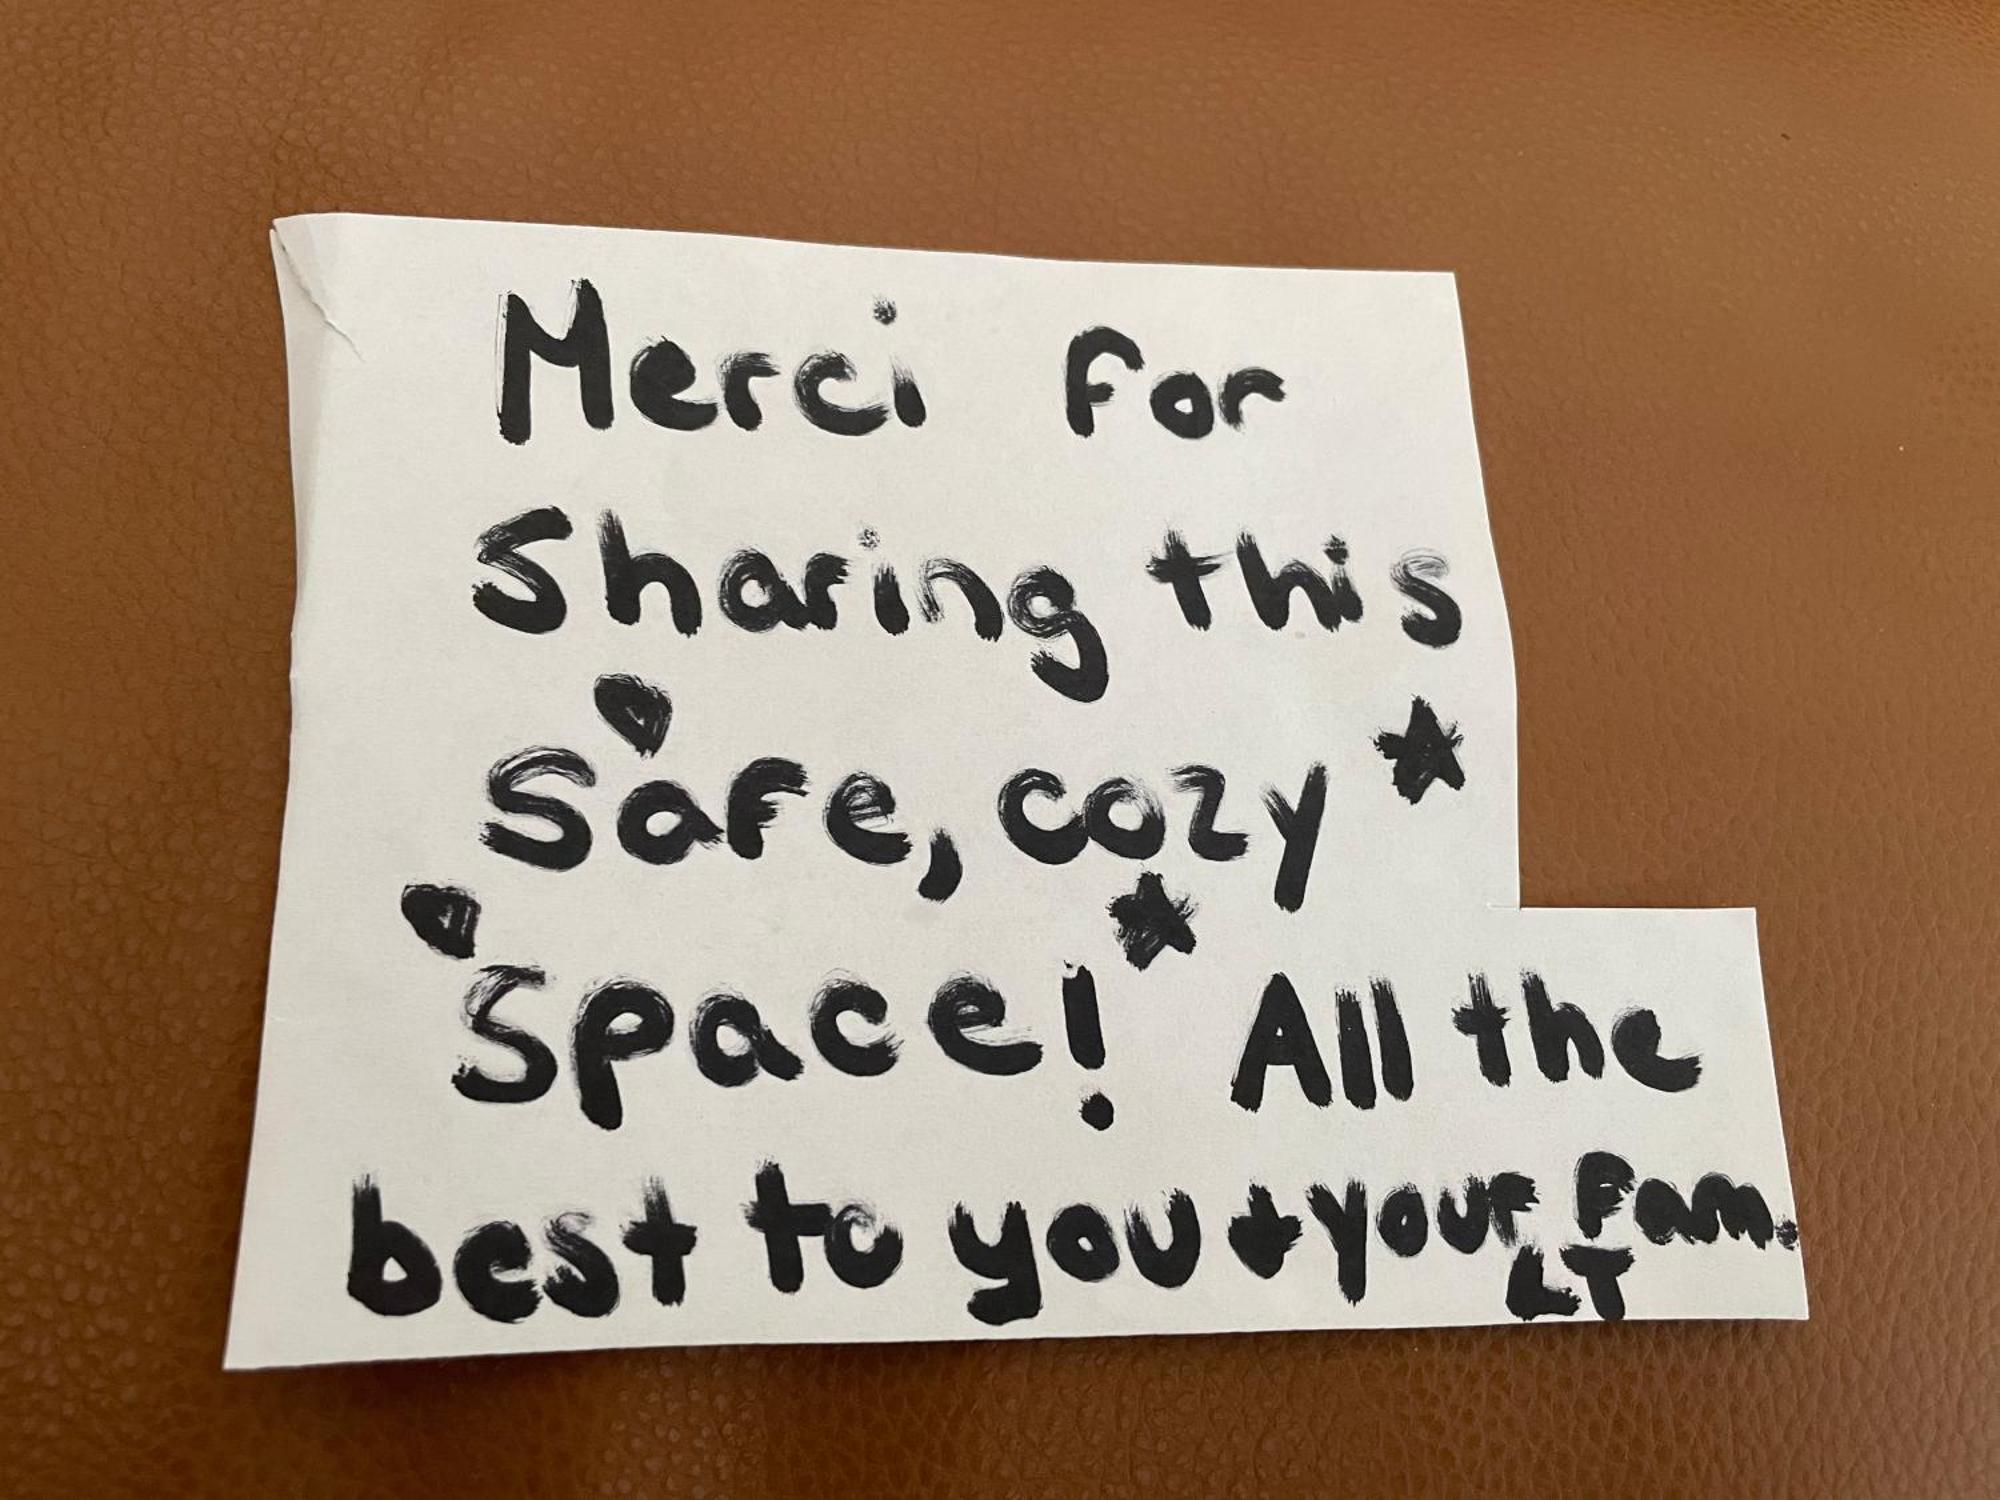 Merci for
Sharing this
Safe, cozy
Space! All the
best to you + your fam.
LT